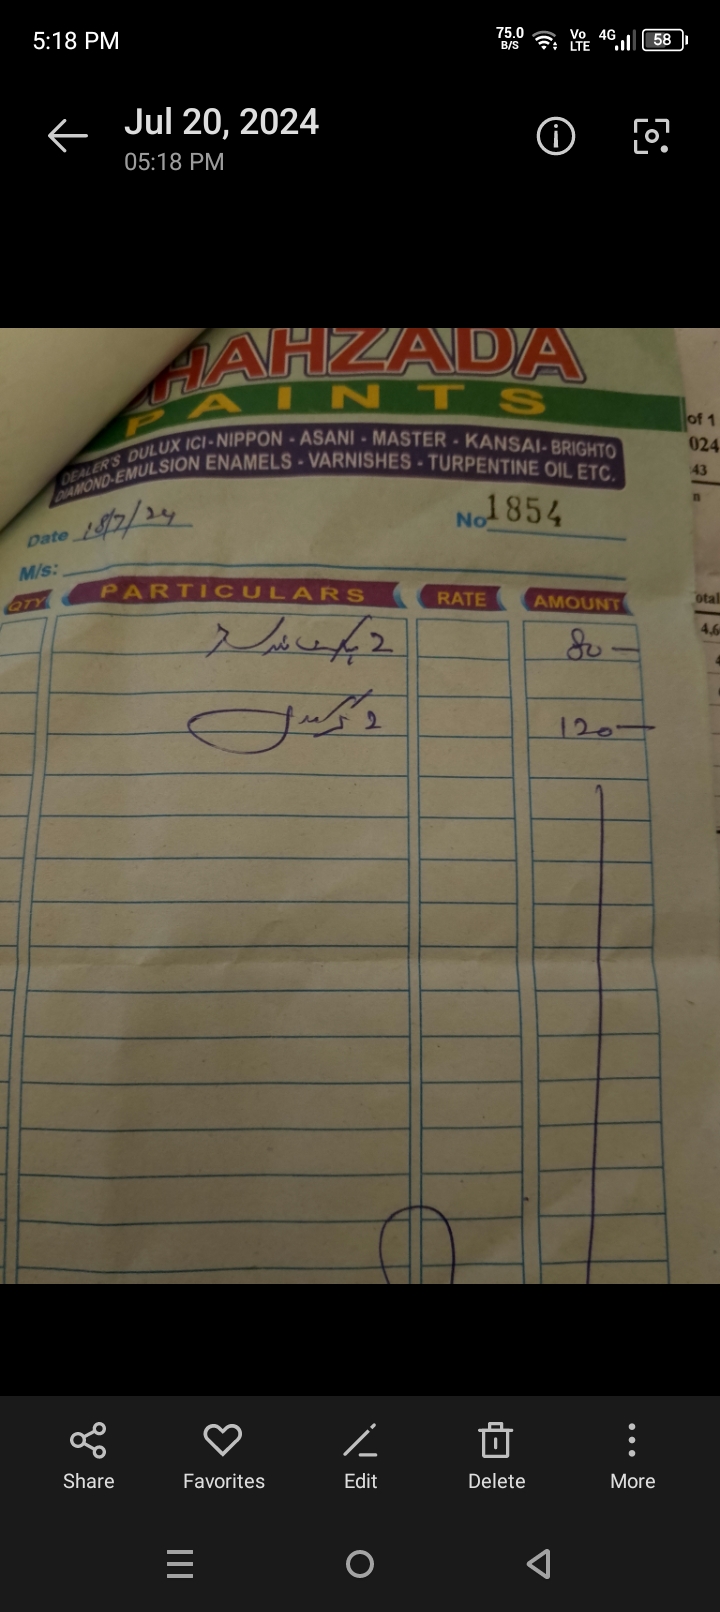 5:18 PM 75.0 B/S Vo LTE 4G 58
Jul 20, 2024
05:18 PM
HAHZADA
PAINTS
DEALER'S DULUX ICI-NIPPON - ASANI - MASTER - KANSAI- BRIGHTO
DIAMOND-EMULSION ENAMELS - VARNISHES - TURPENTINE OIL ETC.
Date 18/7/24 No 1854
M/s:
QTY PARTICULARS RATE AMOUNT
2 80
2 120
of 1
024
43
n
otal
4,6
Share Favorites Edit Delete More